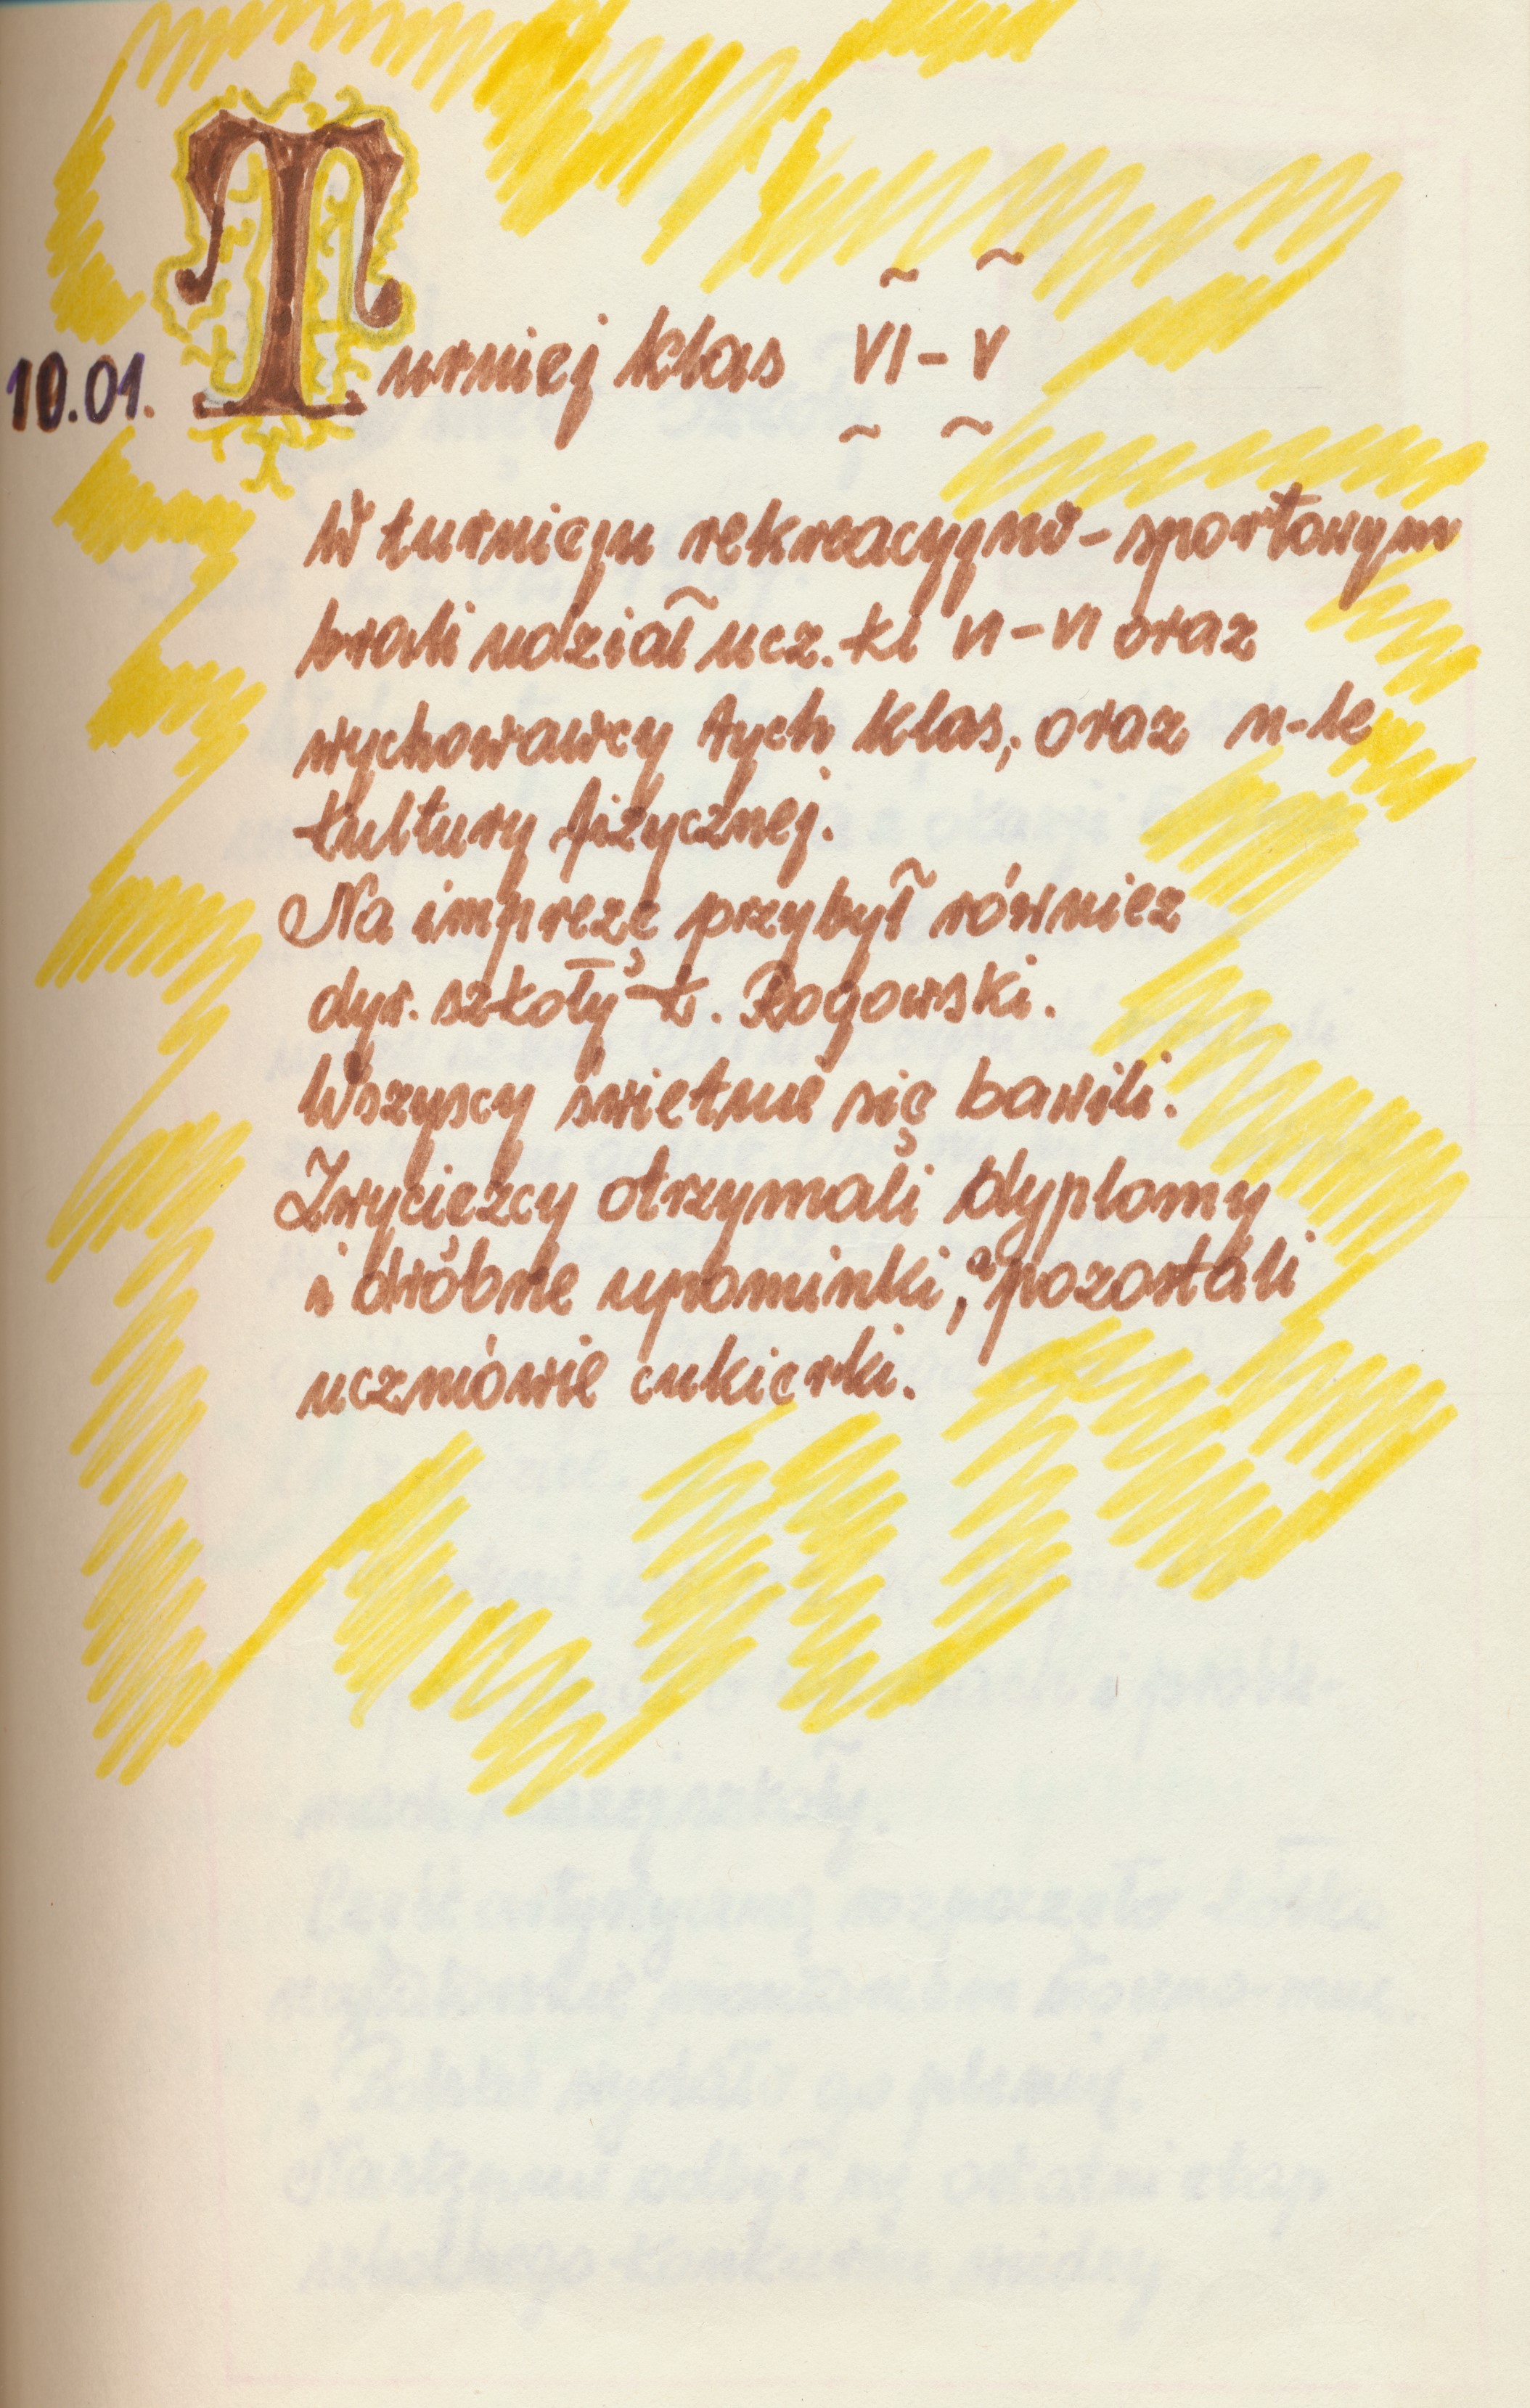 10.01. Turniej klas VI-V
W turnieju rekreacyjno-sportowym
brali udział ucz. kl VI-VI oraz
wychowawcy tych klas, oraz n-le
kultury fizycznej.
Na imprezę przybył równiez
dyr. szkoły Z. Rogowski.
Wszyscy świetnie się bawili.
Zwycięzcy otrzymali dyplomy
i drobne upominki, a pozostali
uczniówie cukierki.